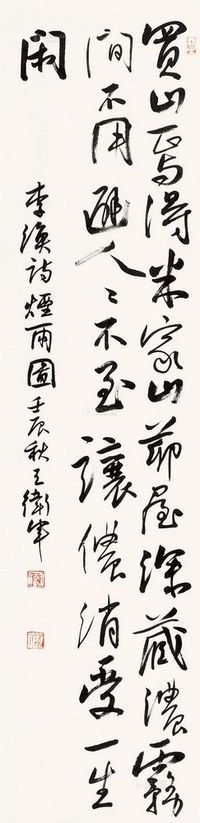 買山焉得米家山茆屋深藏濃霧
間不用避人〻不至讓儂消受一生
閑
李渙詩煙雨圖壬辰秋王衛軍